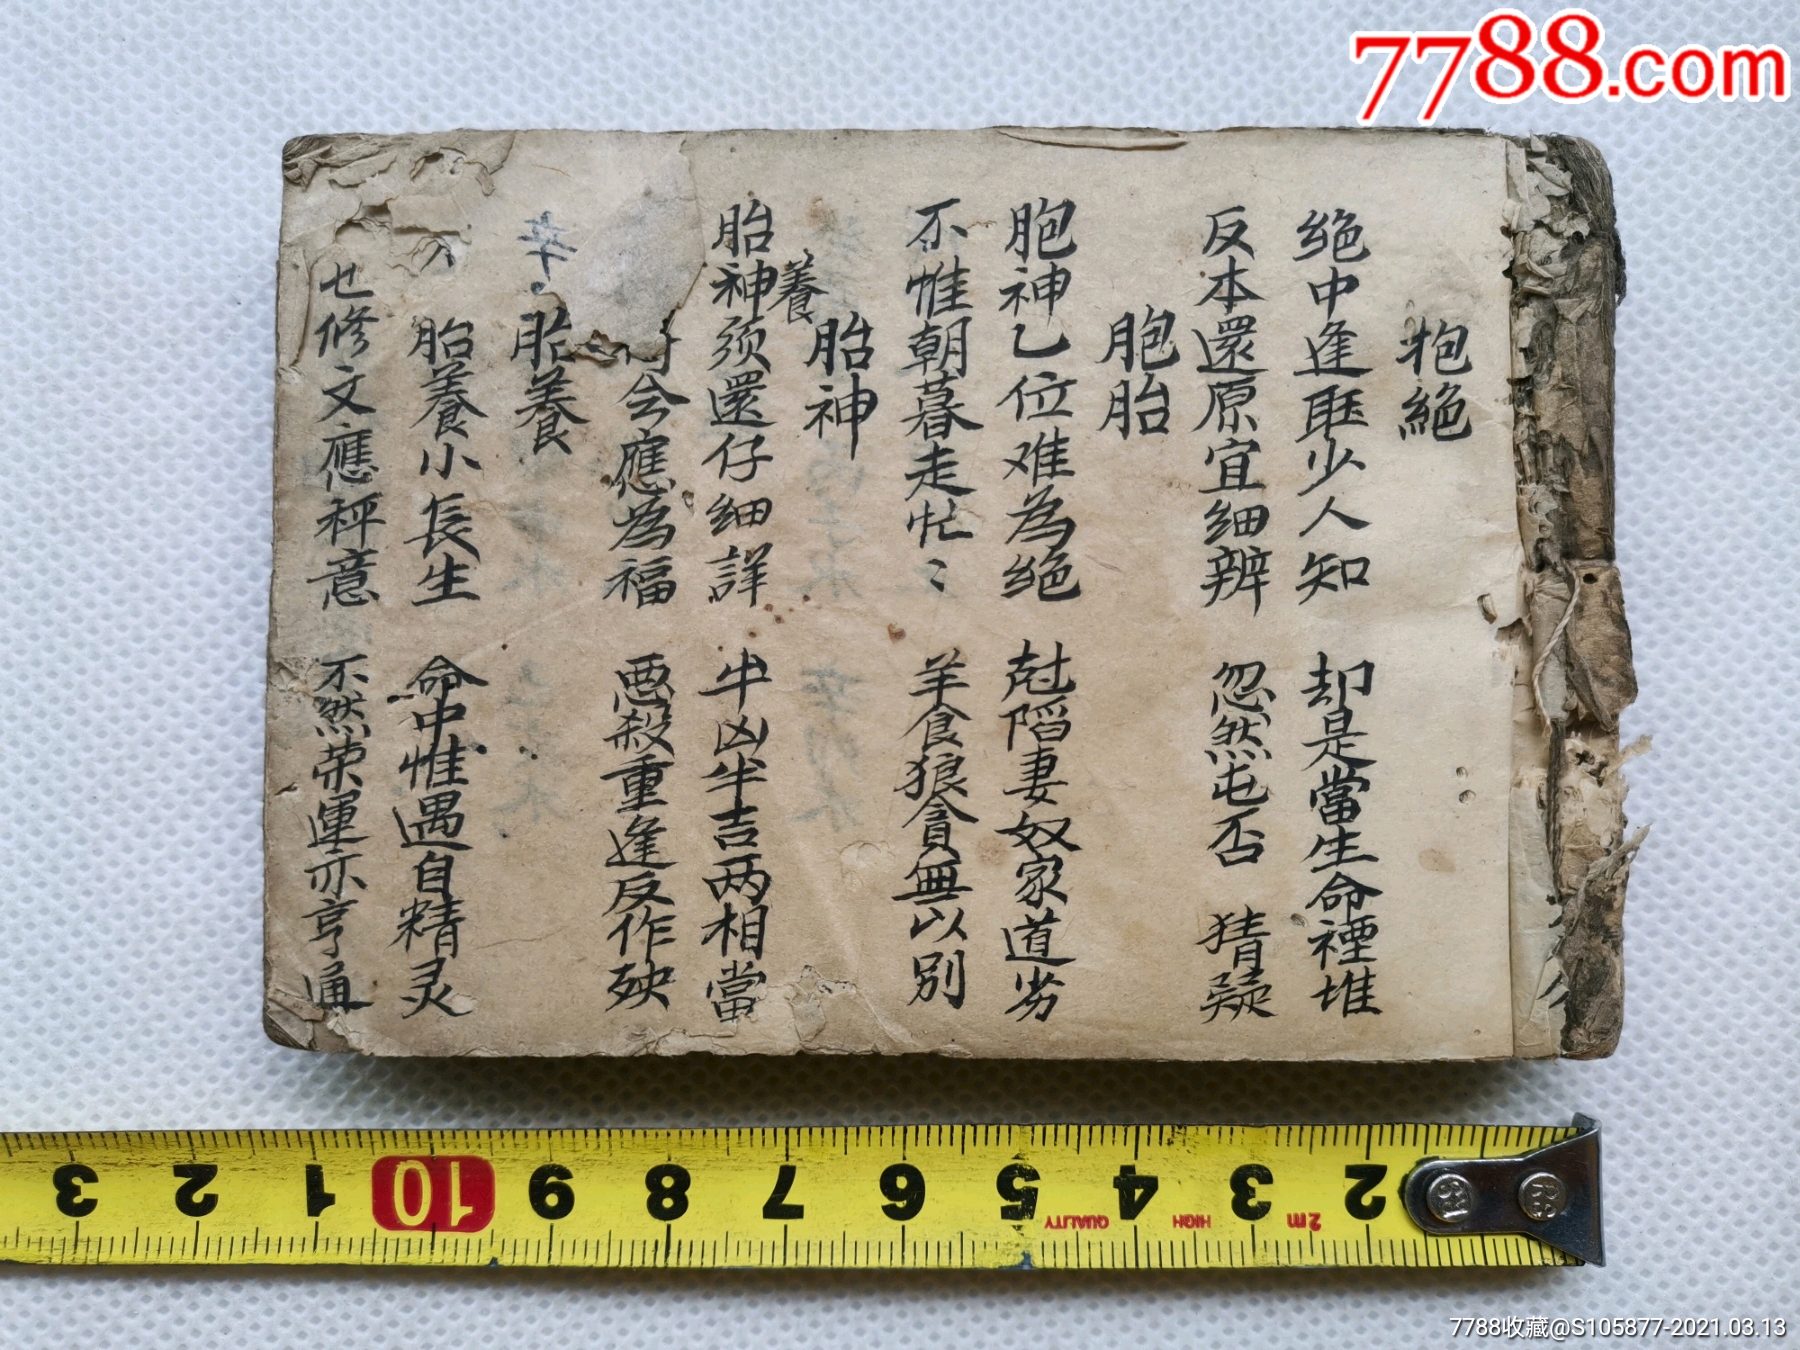 7788.com
抱絕
绝中逢
少人知 却是當生命裡堆
反本還原宜细辨 忽然屯否 猜疑
胞胎
胞神乙位难為绝 尅陷妻奴家道劣
不惟朝暮走忙〻 羊食狼貪無以别
胎神
養
胎神须還仔细詳 半凶半吉两相當
今應為福 悪殺重逢反作殃
辛
胎養
胎養小長生 命中惟遇自精灵
也修文應秤意 不然荣運亦亨通
3 2 1 10 9 8 7 6 5 4 3 2
QUALITY HIGH 2m
7788收藏@S105877-2021.03.13